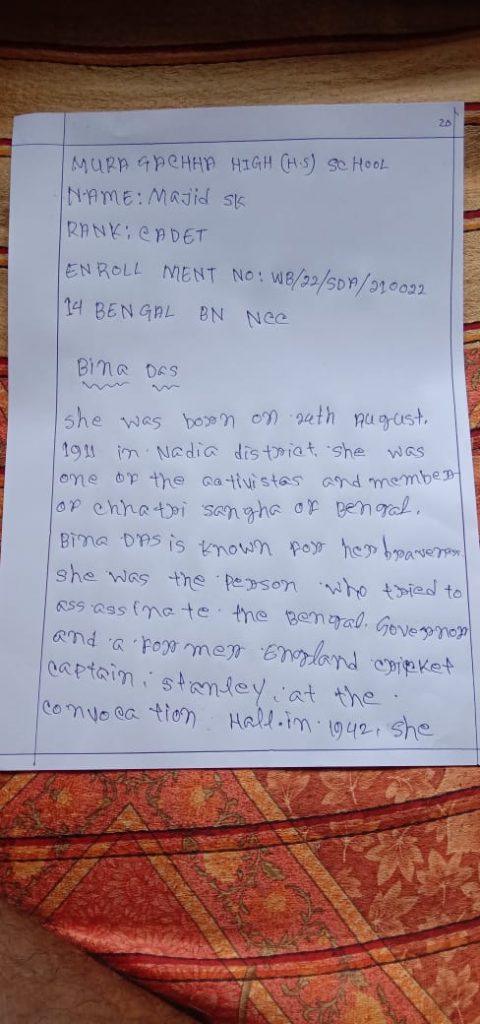 20
MURA GACHHA HIGH (H.S) SCHOOL
NAME: Majid SK
RANK: CADET
ENROLL MENT NO: WB/22/SDA/210022
14 BENGAL BN NCC
Bina Das
she was born on 24th August,
1911 in Nadia district. she was
one of the activistas and member
of chhatri sangha of Bengal.
Bina DAS is known for her
she was the person who tried to
assassinate the Bengal Governor
and a former England cricket
captain, stanley, at the
convoca tion Hall. in 1942, she